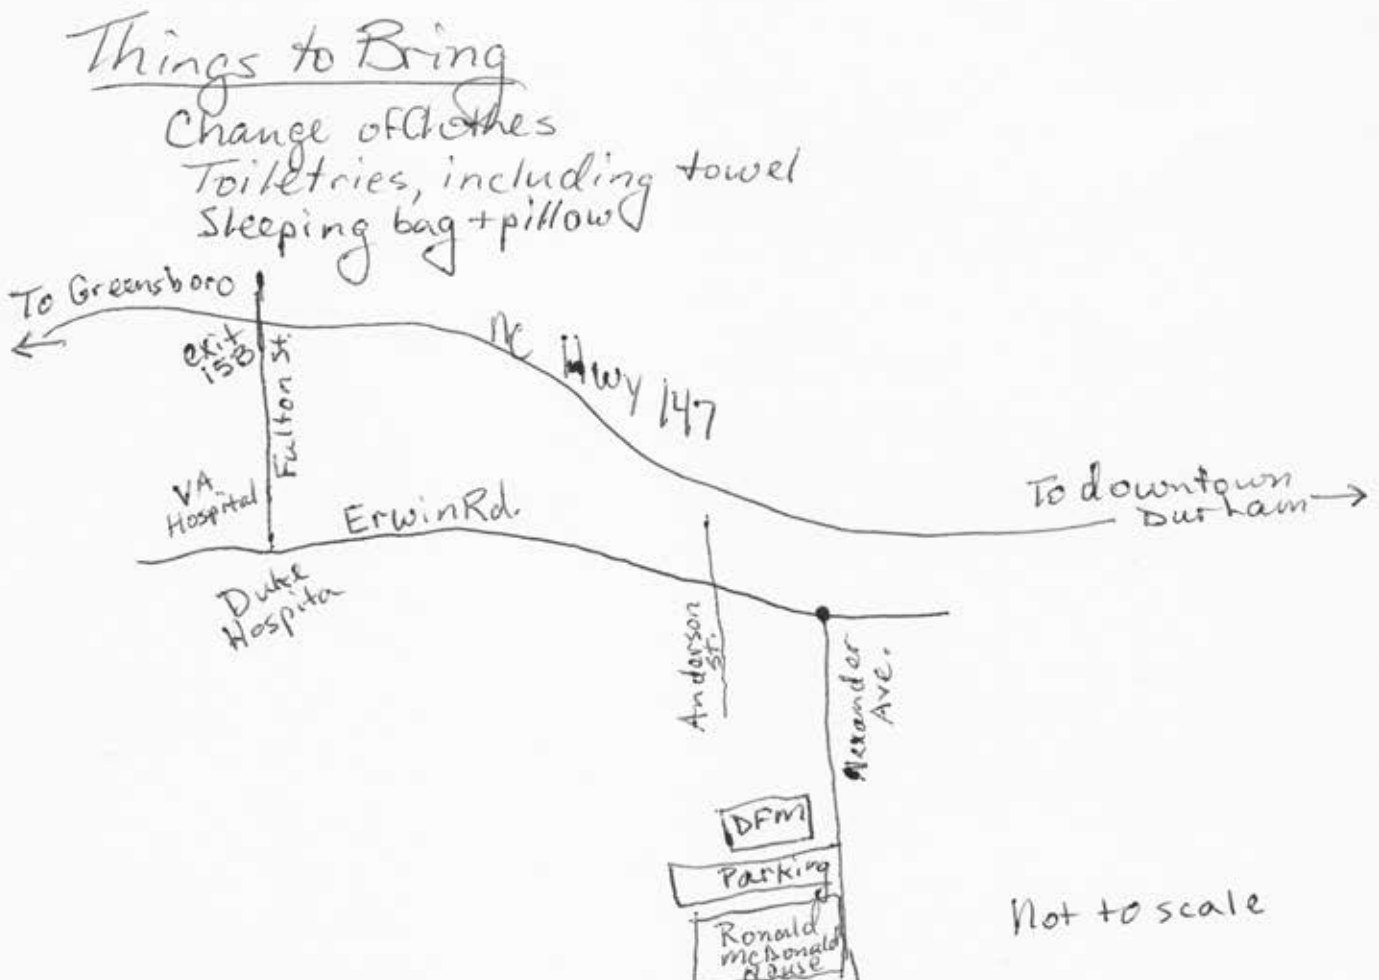 Things to Bring
Change of Clothes
Toiletries, including towel
Sleeping bag + pillow
To Greensboro
exit
15B
Fulton St.
NC Hwy 147
VA
Hospital
Erwin Rd.
To downtown
Durham
Duke
Hospita
Anderson
St.
Alexander
Ave.
DFM
Parking
Ronald
McDonald
House
Not to scale